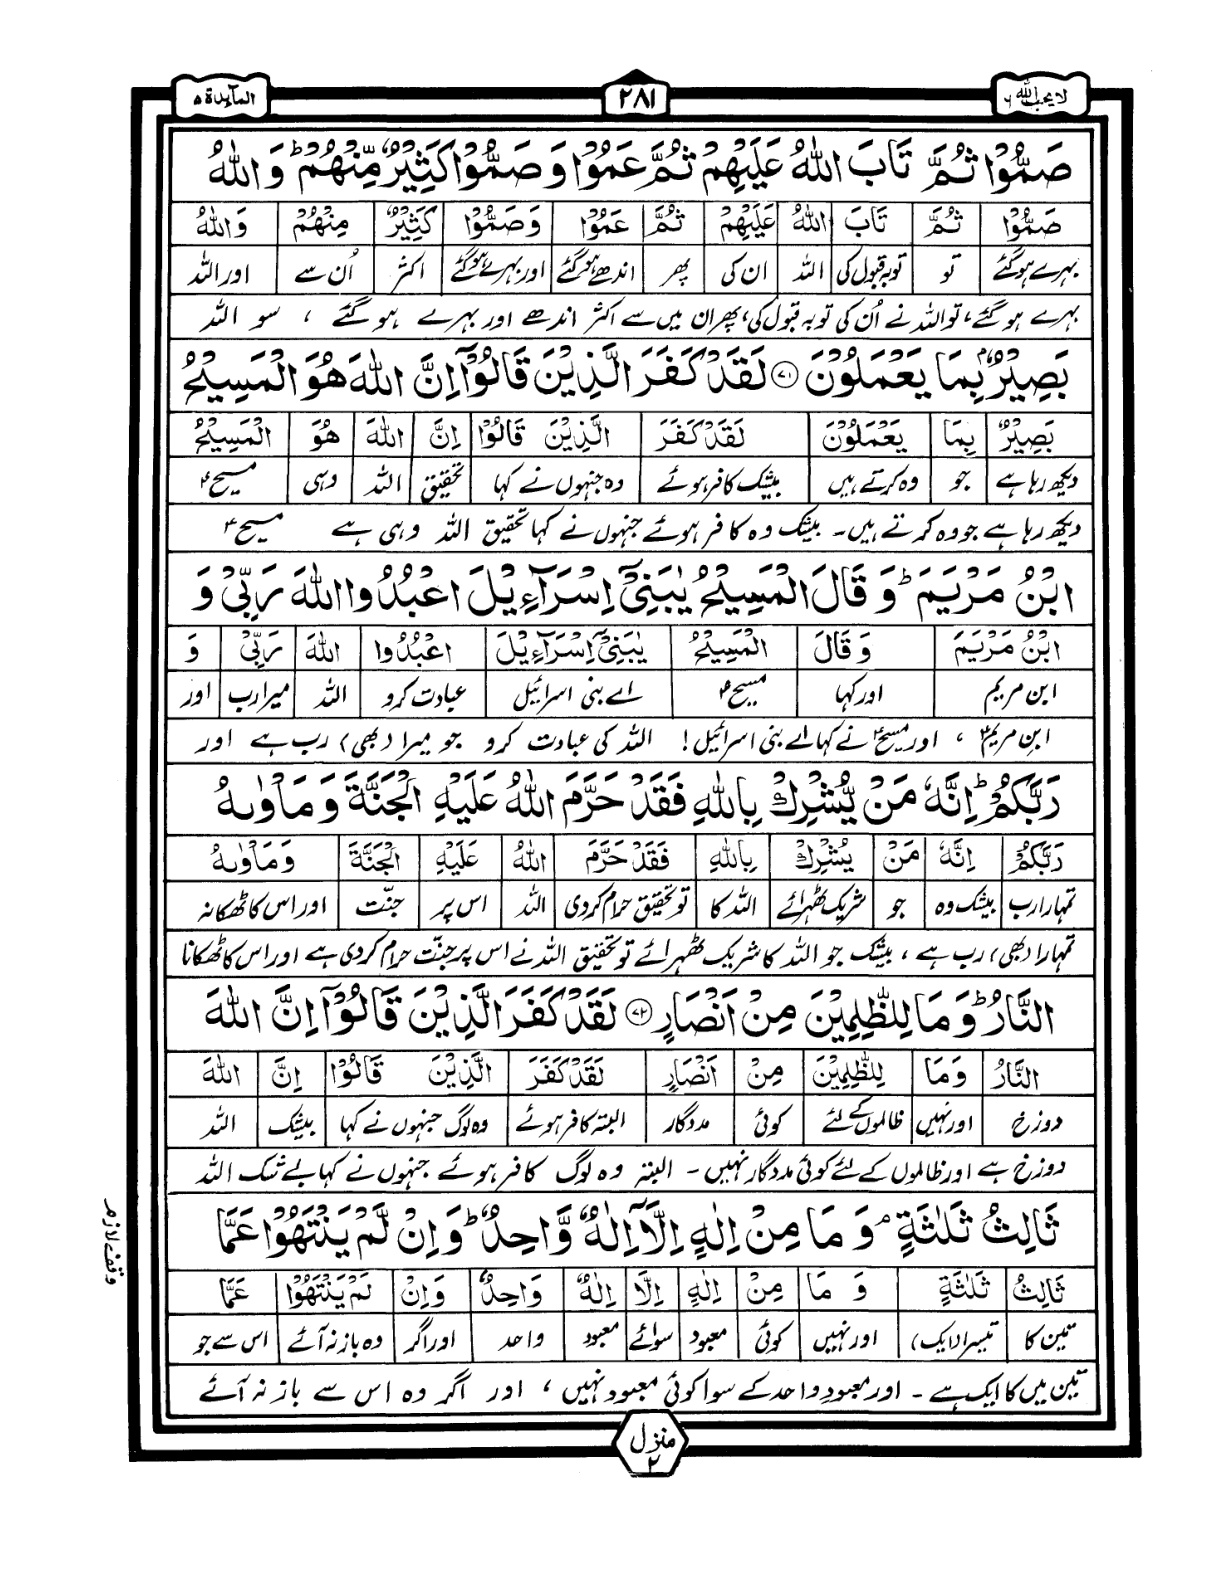 لا یحب اللہ ٦
٢٨١
المآىِٕدة ٥
صَمُّوْا ثُمَّ تَابَ اللّٰهُ عَلَیْهِمْ ثُمَّ عَمُوْا وَ صَمُّوْا كَثِیْرٌ مِّنْهُمْ ؕ وَ اللّٰهُ
صَمُّوْا ثُمَّ تَابَ اللّٰهُ عَلَیْهِمْ ثُمَّ عَمُوْا وَصَمُّوْا كَثِیْرٌ مِنْهُمْ وَاللّٰهُ
بہرے ہوگئے تو توبہ قبول کی اللہ ان کی پھر اندھے ہوگئے اور بہرے ہوگئے اکثر اُن سے اور اللہ
بہرے ہو گئے، تو اللہ نے اُن کی توبہ قبول کی، پھر ان میں سے اکثر اندھے اور بہرے ہو گئے ، سو اللہ
بَصِیْرٌۢ بِمَا یَعْمَلُوْنَ ﴿٧١﴾ لَقَدْ كَفَرَ الَّذِیْنَ قَالُوْۤا اِنَّ اللّٰهَ هُوَ الْمَسِیْحُ
بَصِیْرٌ بِمَا یَعْمَلُوْنَ لَقَدْ كَفَرَ الَّذِیْنَ قَالُوْا اِنَّ اللّٰهَ هُوَ الْمَسِیْحُ
دیکھ رہا ہے جو وہ کرتے ہیں بیشک کافر ہوئے وہ جنہوں نے کہا تحقیق اللہ وہی مسیحؑ
دیکھ رہا ہے جو وہ کرتے ہیں۔ بیشک وہ کافر ہوئے جنہوں نے کہا تحقیق اللہ وہی ہے مسیحؑ
ابْنُ مَرْیَمَ ؕ وَ قَالَ الْمَسِیْحُ یٰبَنِیْۤ اِسْرَآءِیْلَ اعْبُدُوا اللّٰهَ رَبِّیْ وَ
ابْنُ مَرْیَمَ وَ قَالَ الْمَسِیْحُ یٰبَنِیْۤ اِسْرَآءِیْلَ اعْبُدُوا اللّٰهَ رَبِّیْ وَ
ابن مریم اور کہا مسیحؑ اے بنی اسرائیل عبادت کرو اللہ میرا رب اور
ابنِ مریمؑ ، اور مسیحؑ نے کہا اے بنی اسرائیل! اللہ کی عبادت کرو جو میرا (بھی) رب ہے اور
رَبَّكُمْ ؕ اِنَّهٗ مَنْ یُّشْرِكْ بِاللّٰهِ فَقَدْ حَرَّمَ اللّٰهُ عَلَیْهِ الْجَنَّةَ وَ مَاْوٰىهُ
رَبَّكُمْ اِنَّهٗ مَنْ یُشْرِكْ بِاللّٰهِ فَقَدْ حَرَّمَ اللّٰهُ عَلَیْهِ الْجَنَّةَ وَ مَاْوٰىهُ
تمہارا رب بیشک وہ جو شریک ٹھہرائے اللہ کا تو تحقیق حرام کردی اللہ اس پر جنّت اور اس کا ٹھکانہ
تمہارا (بھی) رب ہے ، بیشک جو اللہ کا شریک ٹھہرائے تو تحقیق اللہ نے اس پر جنّت حرام کردی ہے اور اس کا ٹھکانا
النَّارُ ؕ وَ مَا لِلظّٰلِمِیْنَ مِنْ اَنْصَارٍ ﴿٧٢﴾ لَقَدْ كَفَرَ الَّذِیْنَ قَالُوْۤا اِنَّ اللّٰهَ
النَّارُ وَمَا لِلظّٰلِمِیْنَ مِنْ اَنْصَارٍ لَقَدْ كَفَرَ الَّذِیْنَ قَالُوْا اِنَّ اللّٰهَ
دوزخ اور نہیں ظالموں کے لئے کوئی مددگار البتہ کافر ہوئے وہ لوگ جنہوں نے کہا بیشک اللہ
دوزخ ہے اور ظالموں کے لئے کوئی مددگار نہیں ۔ البتہ وہ لوگ کافر ہوئے جنہوں نے کہا بے شک اللہ
ثَالِثُ ثَلٰثَةٍ ۘ وَ مَا مِنْ اِلٰهٍ اِلَّاۤ اِلٰهٌ وَّاحِدٌ ؕ وَ اِنْ لَّمْ یَنْتَهُوْا عَمَّا
وقف لازم
ثَالِثُ ثَلٰثَةٍ وَ مَا مِنْ اِلٰهٍ اِلَّا اِلٰهٌ وَاحِدٌ وَاِنْ لَمْ یَنْتَهُوْا عَمَّا
تین کا تیسرا (ایک) اور نہیں کوئی معبود سوائے معبود واحد اور اگر وہ باز نہ آئے اس سے جو
تین میں کا ایک ہے ۔ اور معبودِ واحد کے سوا کوئی معبود نہیں ، اور اگر وہ اس سے باز نہ آئے
منزل ٢